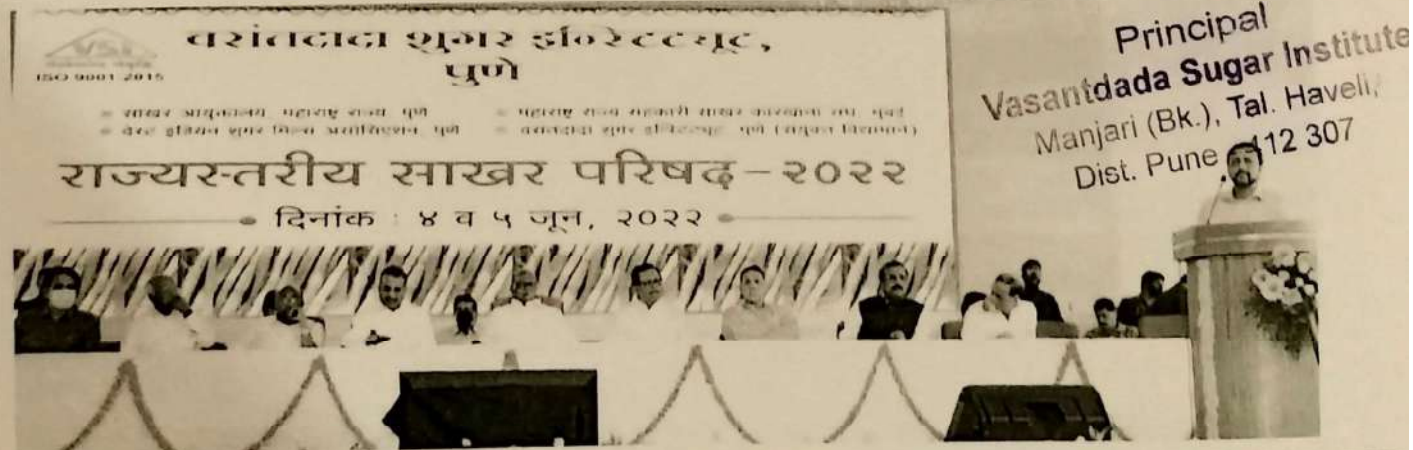 VSI
ISO 9001 2015
वसंतदादा शुगर इन्स्टिट्यूट,
पुणे
साखर आयुक्तालय महाराष्ट्र राज्य पुणे
महाराष्ट्र राज्य सहकारी साखर कारखाना संघ मुंबई
वेस्ट इंडियन शुगर मिल्स असोसिएशन, पुणे
वसंतदादा शुगर इन्स्टिट्यूट पुणे (संयुक्त विद्यमाने)
राज्यस्तरीय साखर परिषद-२०२२
दिनांक : ४ व ५ जून, २०२२
Principal
Vasantdada Sugar Institute
Manjari (Bk.), Tal. Haveli,
Dist. Pune 412 307